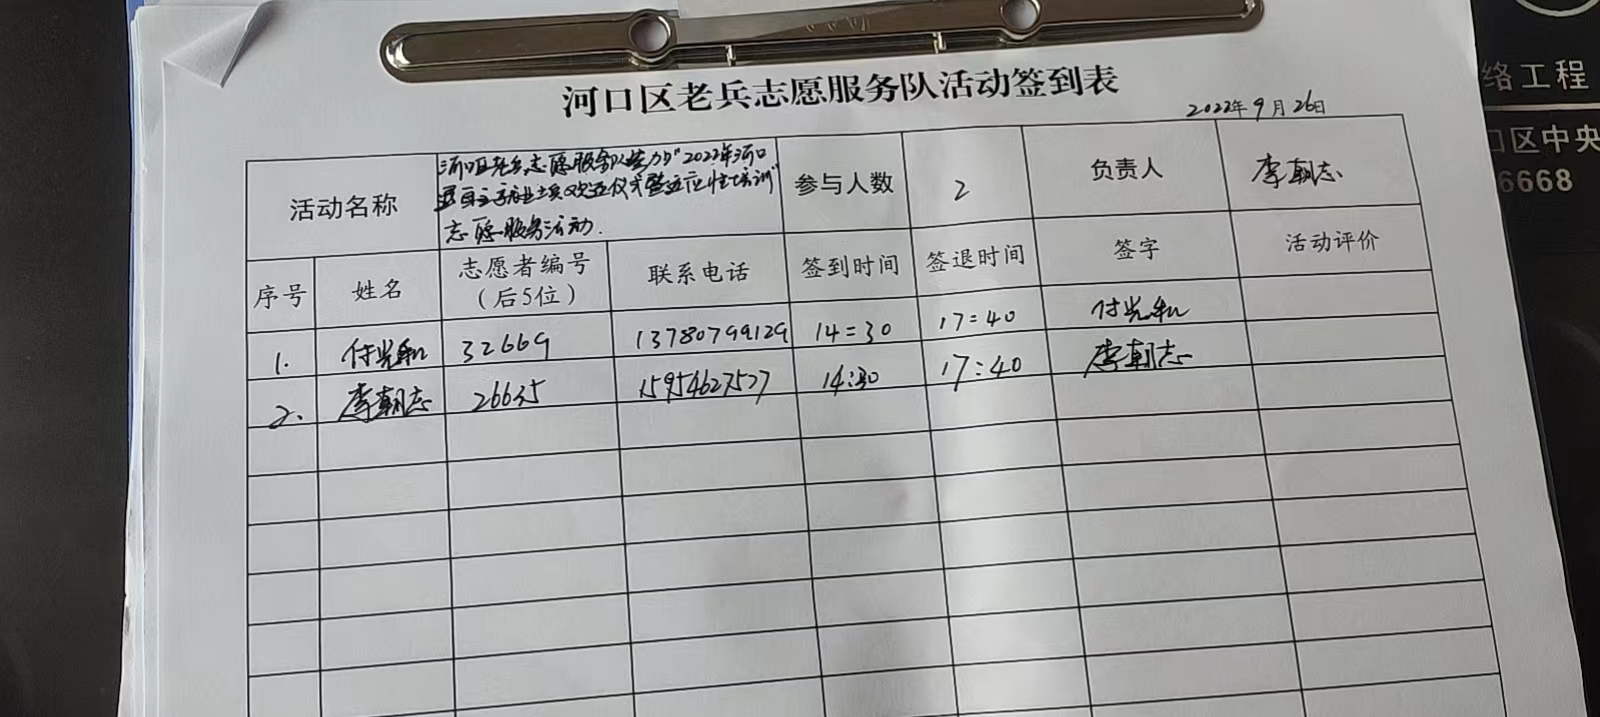 河口区老兵志愿服务队活动签到表
2022年9月26日
活动名称
河口区老兵志愿服务队参加"2022年河口
区自主就业士兵欢迎仪式暨适应性培训"
志愿服务活动.
参与人数
2
负责人
李朝志
序号 姓名 志愿者编号（后5位） 联系电话 签到时间 签退时间 签字 活动评价
1. 付光和 32669 13780799129 14:30 17:40 付光和
2. 李朝志 26635 15954627577 14:30 17:40 李朝志
络工程
口区中央
6668